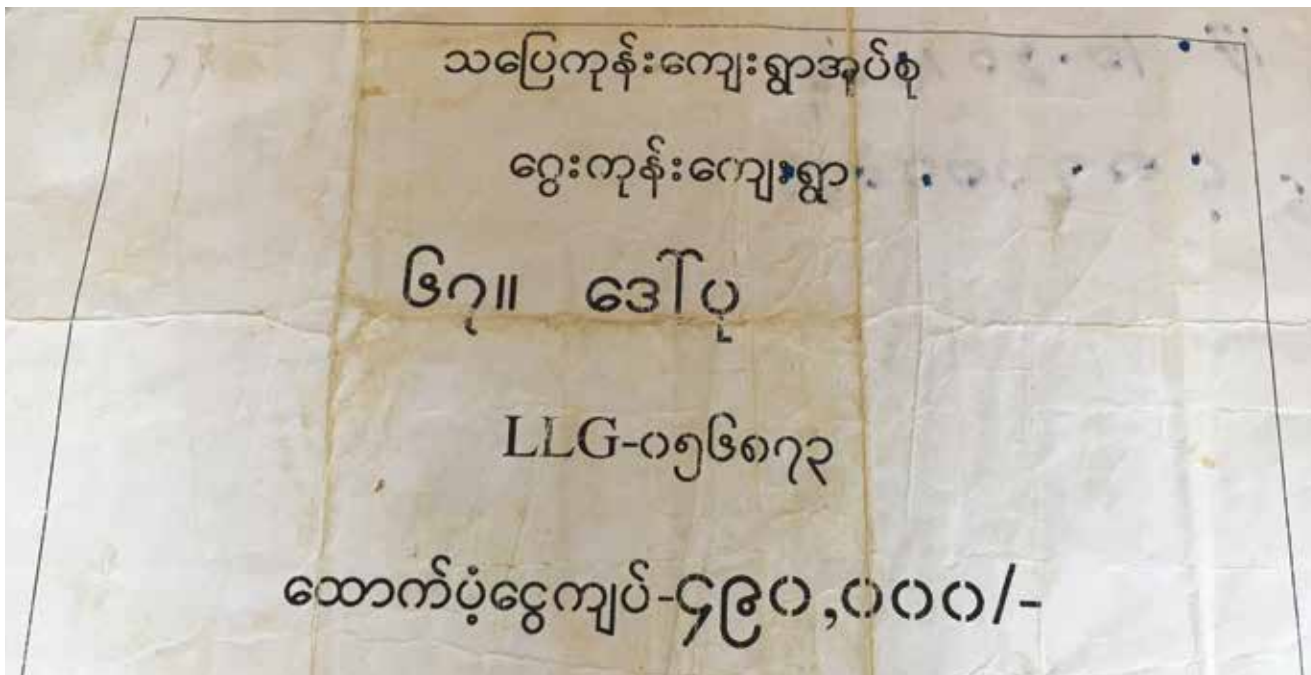 သပြေကုန်းကျေးရွာအုပ်စု
ဂွေးကုန်းကျေးရွာ
၆၇။ ဒေါ်ပု
LLG-၀၅၆၈၇၃
ထောက်ပံ့ငွေကျပ်-၄၉၀,၀၀၀/-